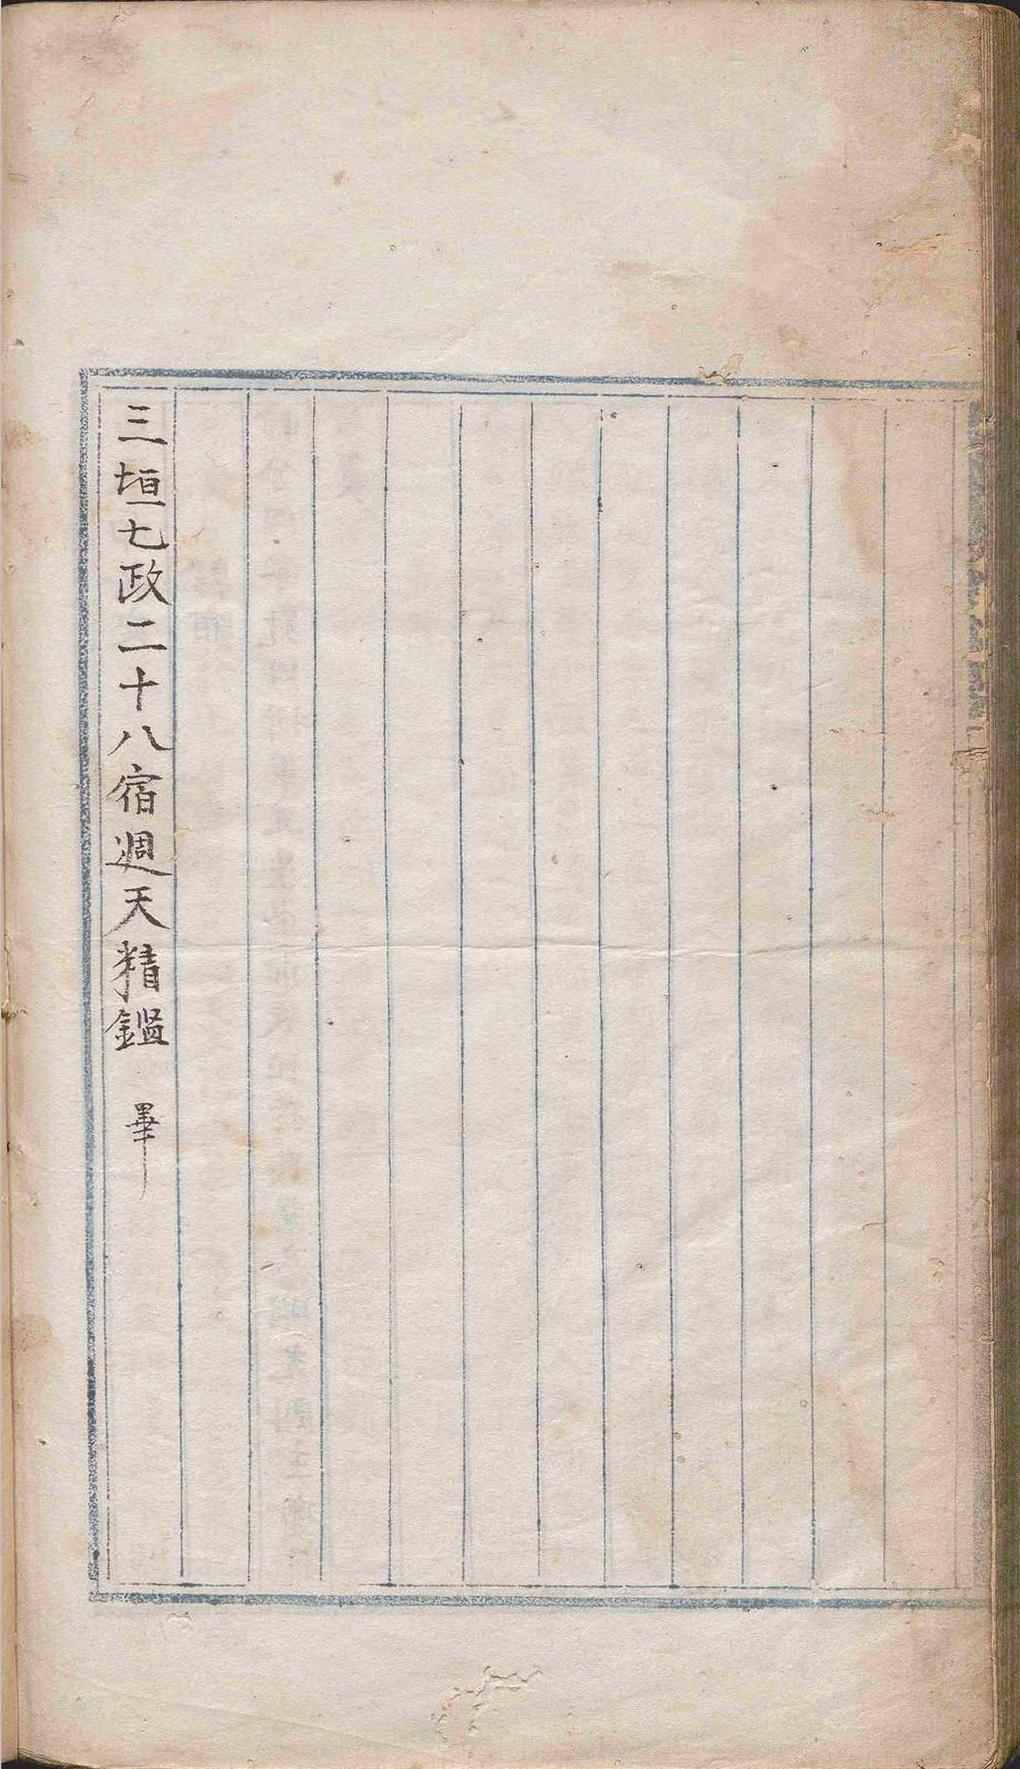 三垣七政二十八宿週天精鑑 畢